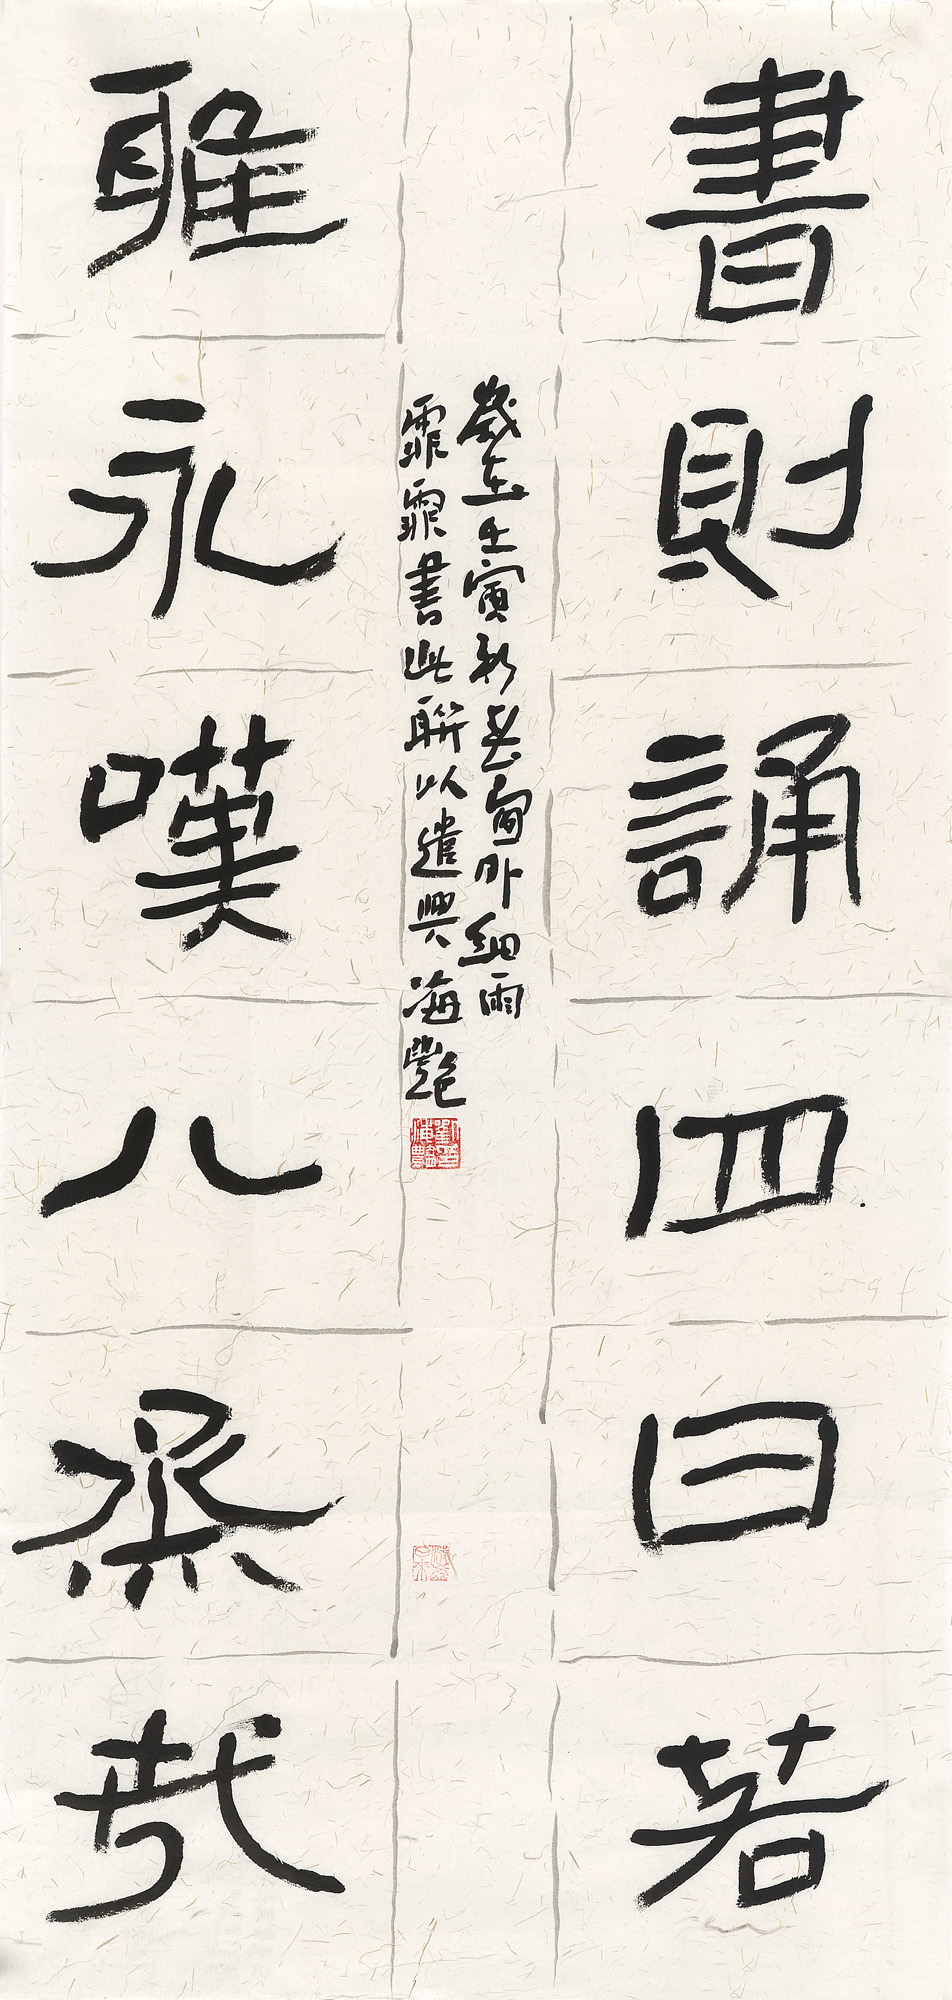 書則誦四曰若
雅永嘆八烝哉
歲在壬寅新春窗外細雨
霏霏書此聯以遣興海艷